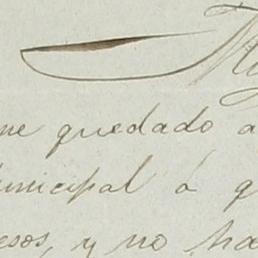 me quedado a
unicipal á q
esos, y no ha